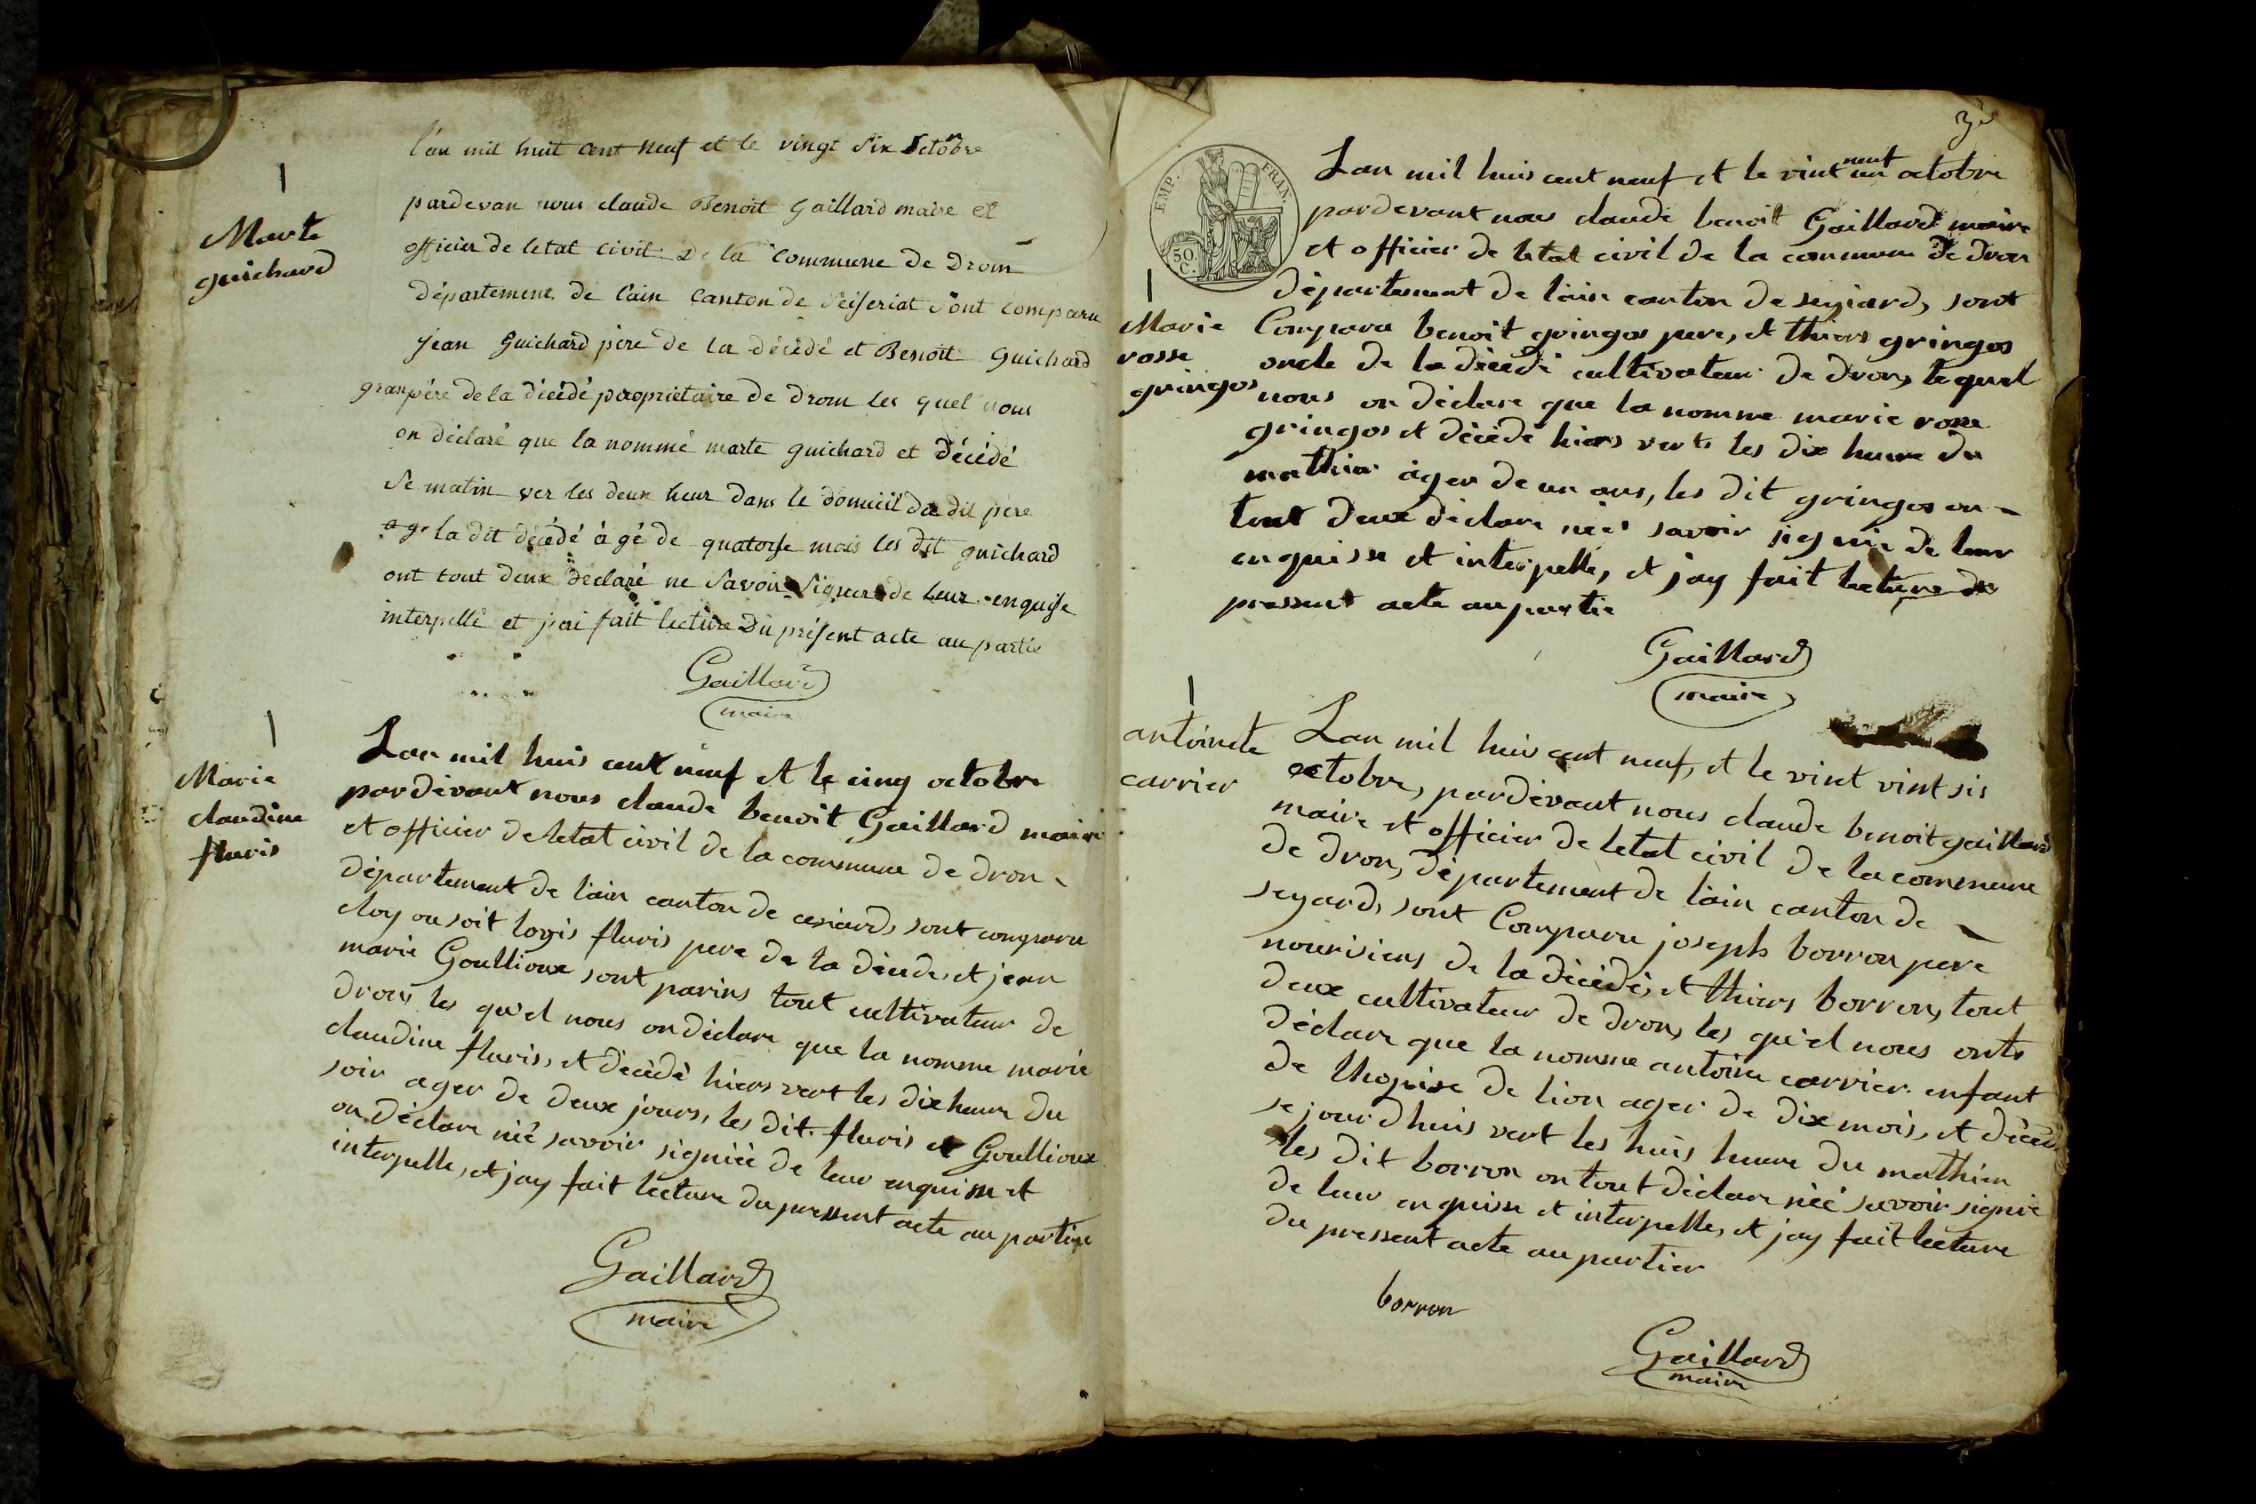 l'an mil huit cent neuf et le vingt six octobre
Marte
guichard
pardevan nous claude Benoit Gaillard maire et
officier de letat civil De la commune de Drom
département de l'ain Canton de Seiseriat Sont comparu
jean Guichard père de la décédé et Benoit Guichard
granpère de la décédé propriétaire de drom les quel nous
on déclaré que la nommé marte guichard et décédé
Se matin ver les deux heur dans le domicil du dit père
la dit décédé à gé de quatorse mois les dit guichard
ont tout deux déclaré ne Savoir Signer de leur enquise
interpellé et j'ai fait lecture Du présent acte au partie
Gaillard
maire
Marie
claudine
fluris
Lan mil huis cent neuf et le cinq octobre
pardevant nous claude benoit Gaillard maire
et officier de letat civil de la commune de dron
département de l'ain canton de cesiard, sont comparu
cloy ou soit logis fluris pere de la décede, et jean
marie Goullioux sont parins tout cultivateur de
dron les qu'el nous on déclare que la nomme marie
claudine fluris, et décédé hiers vert les dix heure du
soir ager de deux jours, les dit fluris et Goullioux
on déclare néé savoir signiéé de leur enquisse et
interpelle, et jay fait lecture du pressent acte au partie
Gaillard
maire
EMP. FRAN.
50
C.
Lan mil huis cent neuf et le vint neuf octobre
pardevant nous claude benoit Gaillard maire
et officier de letat civil de la commune de dron
département de l'ain canton de segiard, sont
Marie
rosse
gringos
Comparu benoit gringos pere, et thiers gringos
oncle de la décédé cultivateur de dron, lequel
nous on déclare que la nomme marie rosse
gringos et décédé hiers verts les dix heure du
mathin ager de un ans, les dit gringos on
tout deux déclare néé savoir signie de leur
enquisse et interpelle, et jay fait lecture du
pressent acte au partie
Gaillard
maire
antoinete
carrier
Lan mil huis cent neuf, et le vint vint sis
octobre, pardevant nous claude benoit gaillard
maire et officier de letat civil de la commune
de dron, département de l'ain canton de
segard, sont Comparu joseph borron pere
nourisiens de la décédé, et thiers borron, tout
deux cultivateur de dron, les qu'el nous onts
déclare que la nomme antoine carrier enfant
de lhopise de lion ager de dix mois, et décéde
se jourdhuis vert les huis heure du mathin
les dit borron on tout déclare néé savoir signie
de leur enquisse et interpelle, et jay fait lecture
du pressent acte au partier
borron
Gaillard
maire